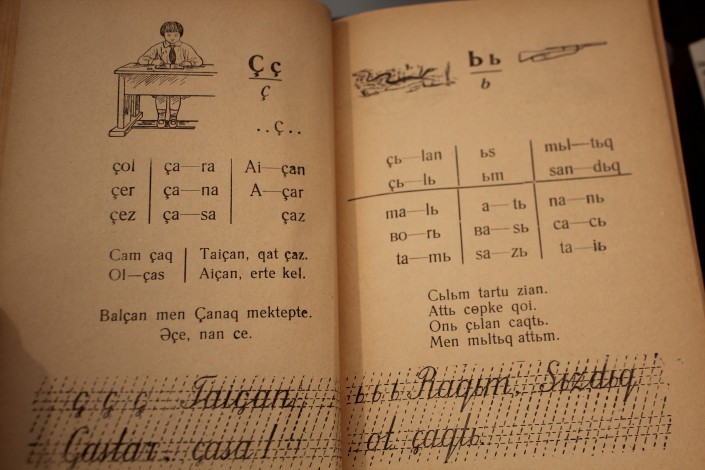 Ç ç
ç
. . ç . .
çol ça—ra Ai—çan
çer ça—na A—çar
çez ça—sa çaz
Cam çaq Taiçan, qat çaz.
Ol—ças Aiçan, erte kel.
Balçan men Çanaq mektepte.
Əçe, nan ce.
ç ç ç Taiçan,
Çastar, çasa!
Ь ь
ь
çь—lan ьs mьl—tьq
çь—lь ьm san—dьq
ma—lь a—tь na—nь
ʙo—rь ʙa—sь ca—cь
ta—mь sa—zь ta—iь
Cьlьm tartu zian.
Attь cɵpke qoi.
Onь çьlan caqtь.
Men mьltьq attьm.
ь ь ь Raqьm, Sьzdьq
ot çaqtь.